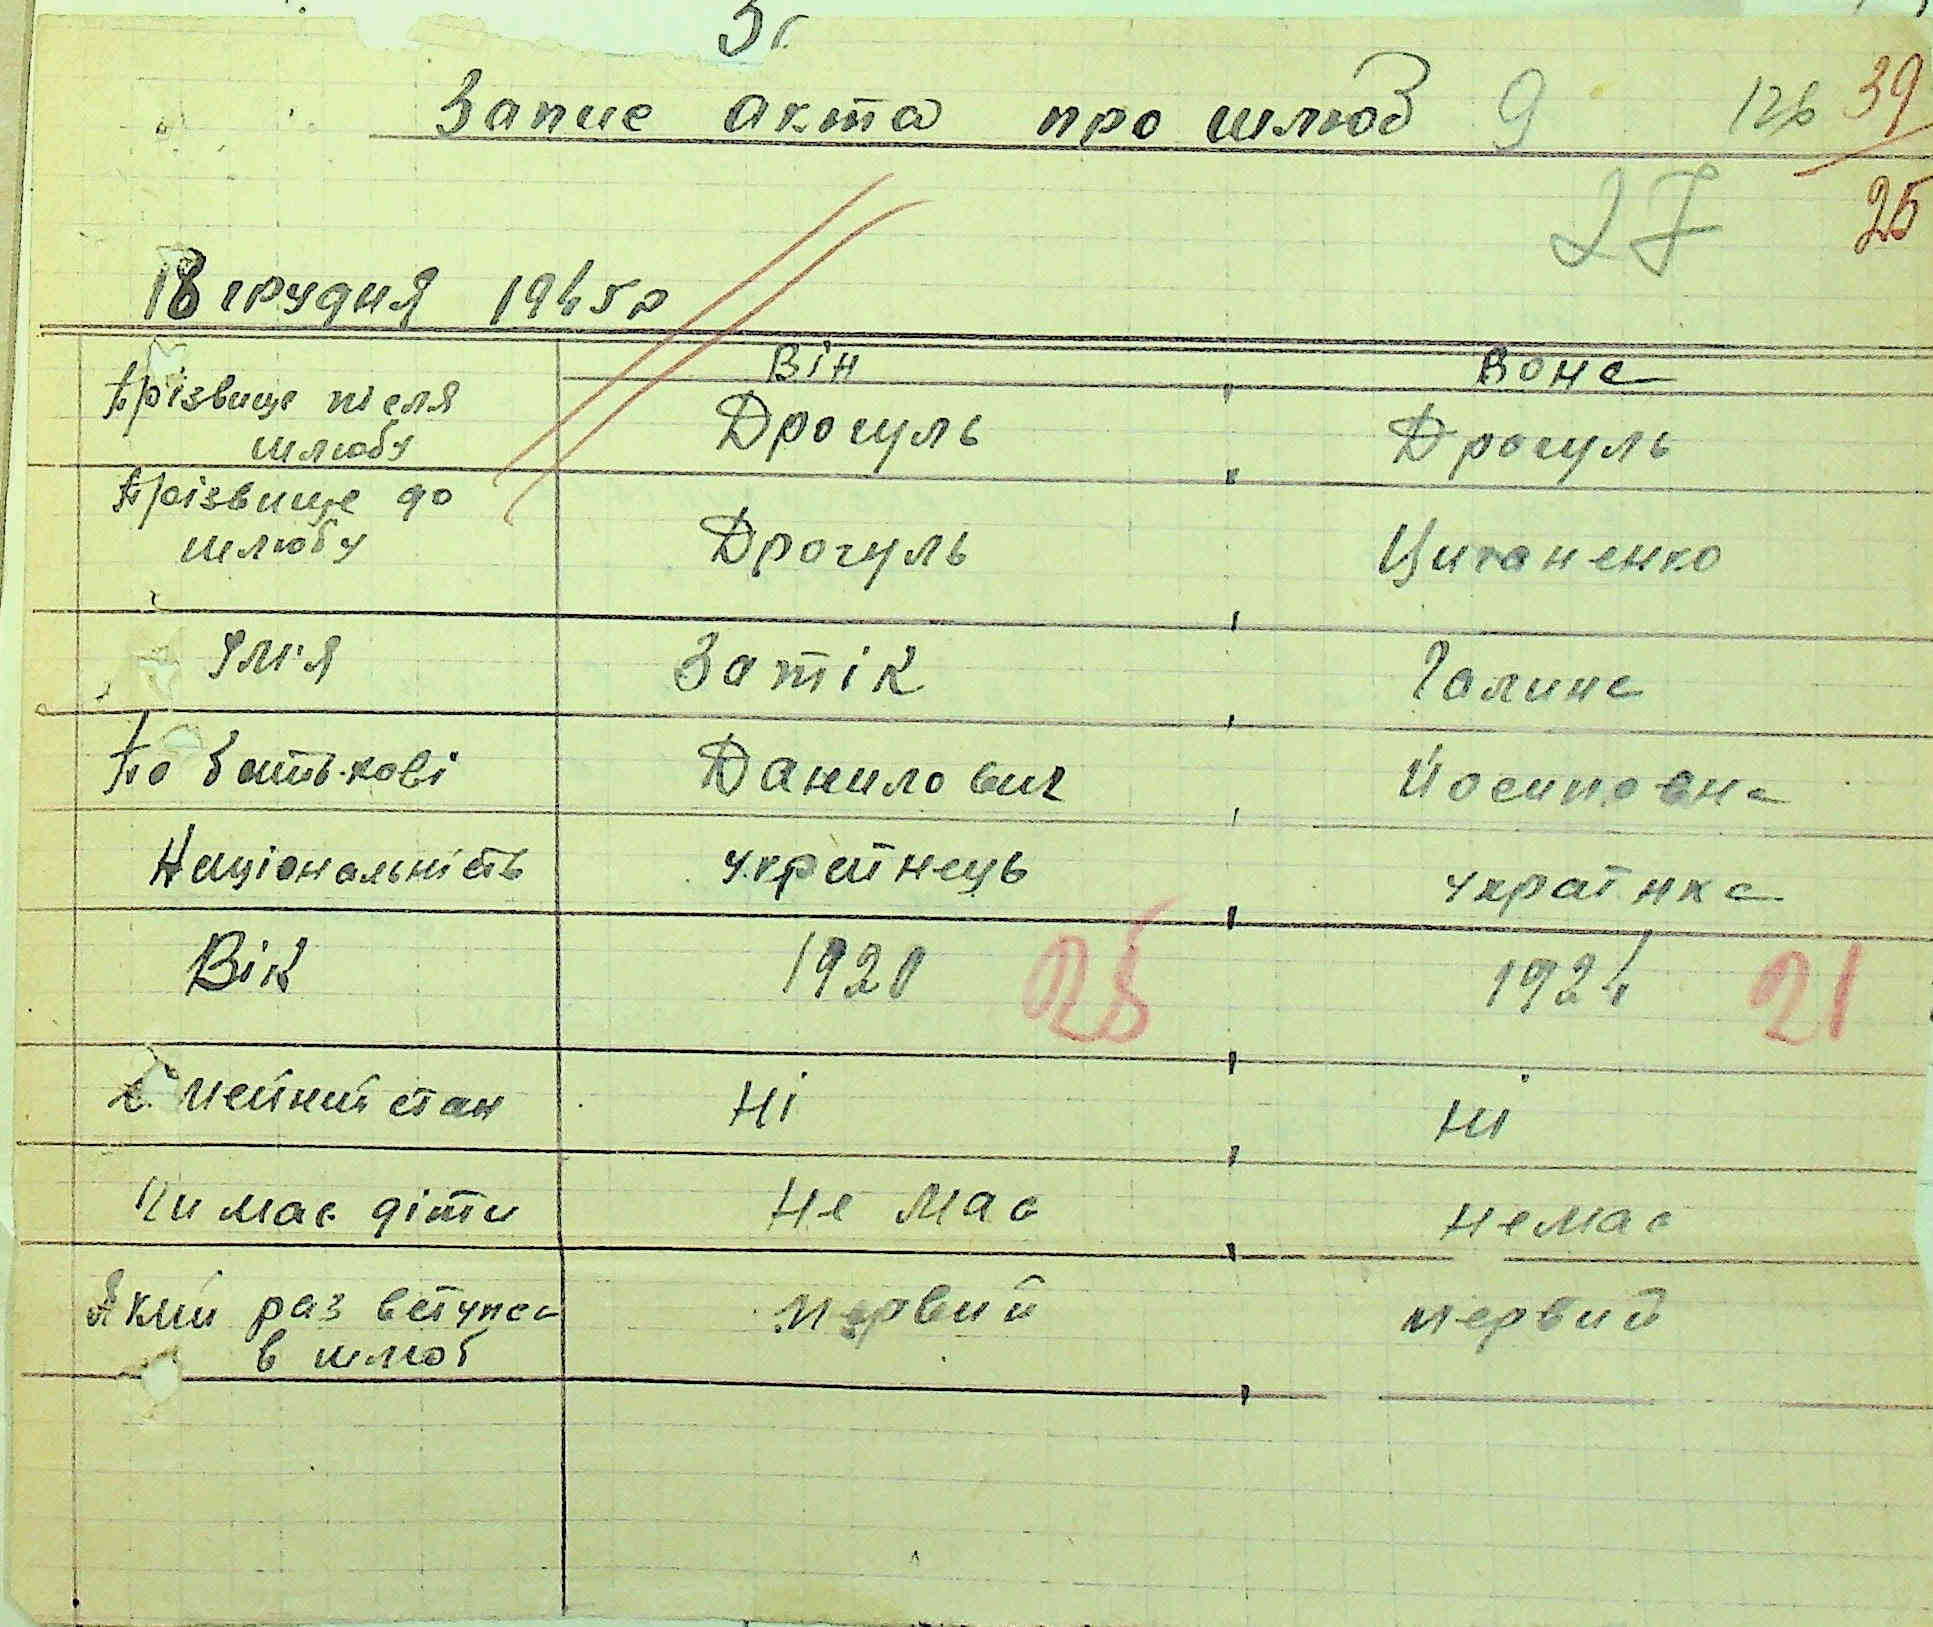 Зг
Запис акта про шлюб 9 126 39
27 25
18 грудня 1945 р
Він Вона
Прізвище після шлюбу Дрогуль Дрогуль
Прізвище до шлюбу Дрогуль Циганенко
Імʼя Затік Галина
По батькові Данилович Йосиповна
Національність українець українка
Вік 1920 25 1924 21
Сімейний стан Ні Ні
Чи має діти Не має немає
Який раз вступає в шлюб первий первий